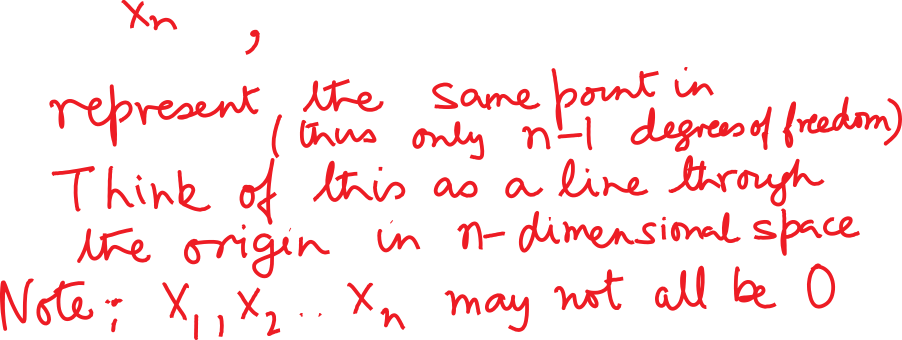 xn ,
represent the same point in
(thus only n-1 degrees of freedom)
Think of this as a line through
the origin in n-dimensional space
Note: X1, X2 .. Xn may not all be 0